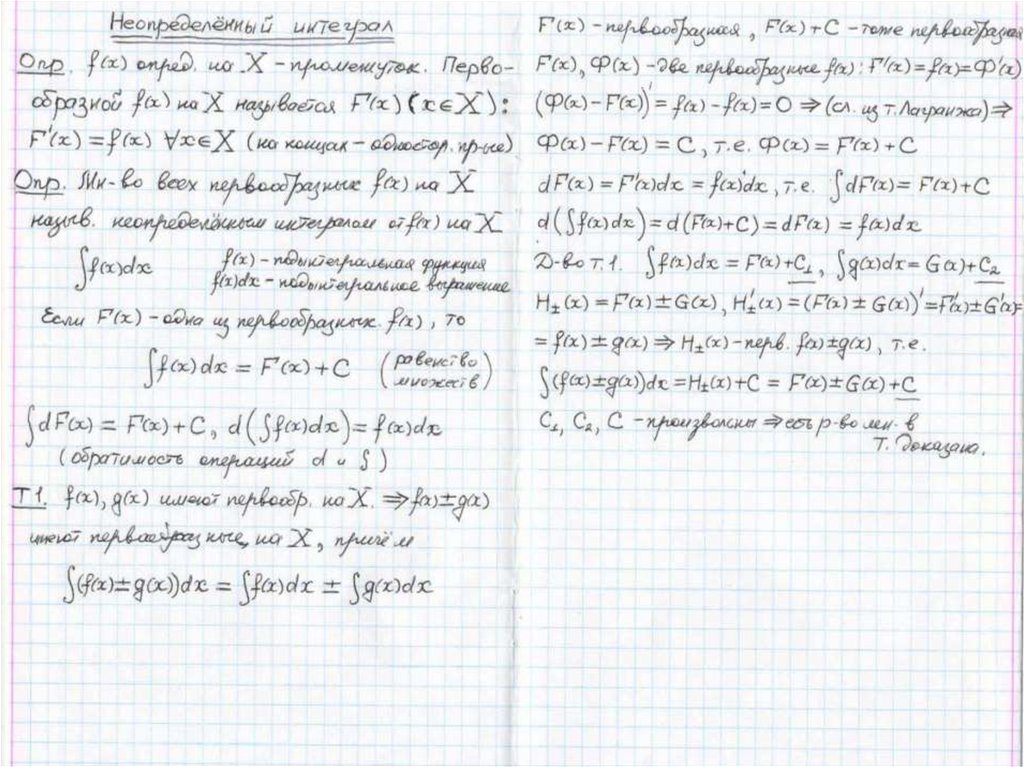 Неопределённый интеграл
Опр. f(x) опред. на X - промежуток. Перво-
образной f(x) на X называется F(x) (x∈X):
F'(x) = f(x) ∀x∈X (на концах - одностор. пр-ые)
Опр. Мн-во всех первообразных f(x) на X
назыв. неопределённым интегралом от f(x) на X
∫f(x)dx f(x) - подынтегральная функция
f(x)dx - подынтегральное выражение
Если F(x) - одна из первообразных f(x), то
∫f(x)dx = F(x) + C (равенство
множеств)
∫dF(x) = F(x) + C, d(∫f(x)dx) = f(x)dx
(обратимость операций d и ∫)
Т1. f(x), g(x) имеют первообр. на X. ⇒ f(x)±g(x)
имеют первообразные на X, причём
∫(f(x)±g(x))dx = ∫f(x)dx ± ∫g(x)dx
F(x) - первообразная, F(x)+C - тоже первообразная
F(x), Ф(x) - две первообразные f(x): F'(x) = f(x) = Ф'(x)
(Ф(x) - F(x))' = f(x) - f(x) = 0 ⇒ (сл. из т. Лагранжа) ⇒
Ф(x) - F(x) = C, т.е. Ф(x) = F(x) + C
dF(x) = F'(x)dx = f(x)dx, т.е. ∫dF(x) = F(x) + C
d(∫f(x)dx) = d(F(x)+C) = dF(x) = f(x)dx
Д-во т.1. ∫f(x)dx = F(x)+C₁, ∫g(x)dx = G(x)+C₂
H±(x) = F(x)±G(x), H'±(x) = (F(x)±G(x))' = F'(x)±G'(x) =
= f(x)±g(x) ⇒ H±(x) - перв. f(x)±g(x), т.е.
∫(f(x)±g(x))dx = H±(x)+C = F(x)±G(x)+C
C₁, C₂, C - произвольны ⇒ есть р-во мн-в
Т. доказана.